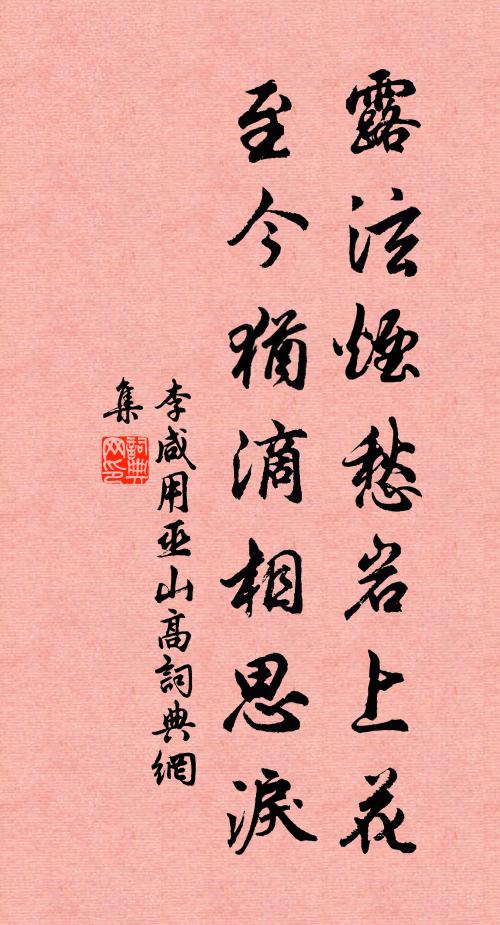 露泫煙愁岩上花
至今猶滴相思淚
李咸用巫山高詞典網
集
詞典
网印